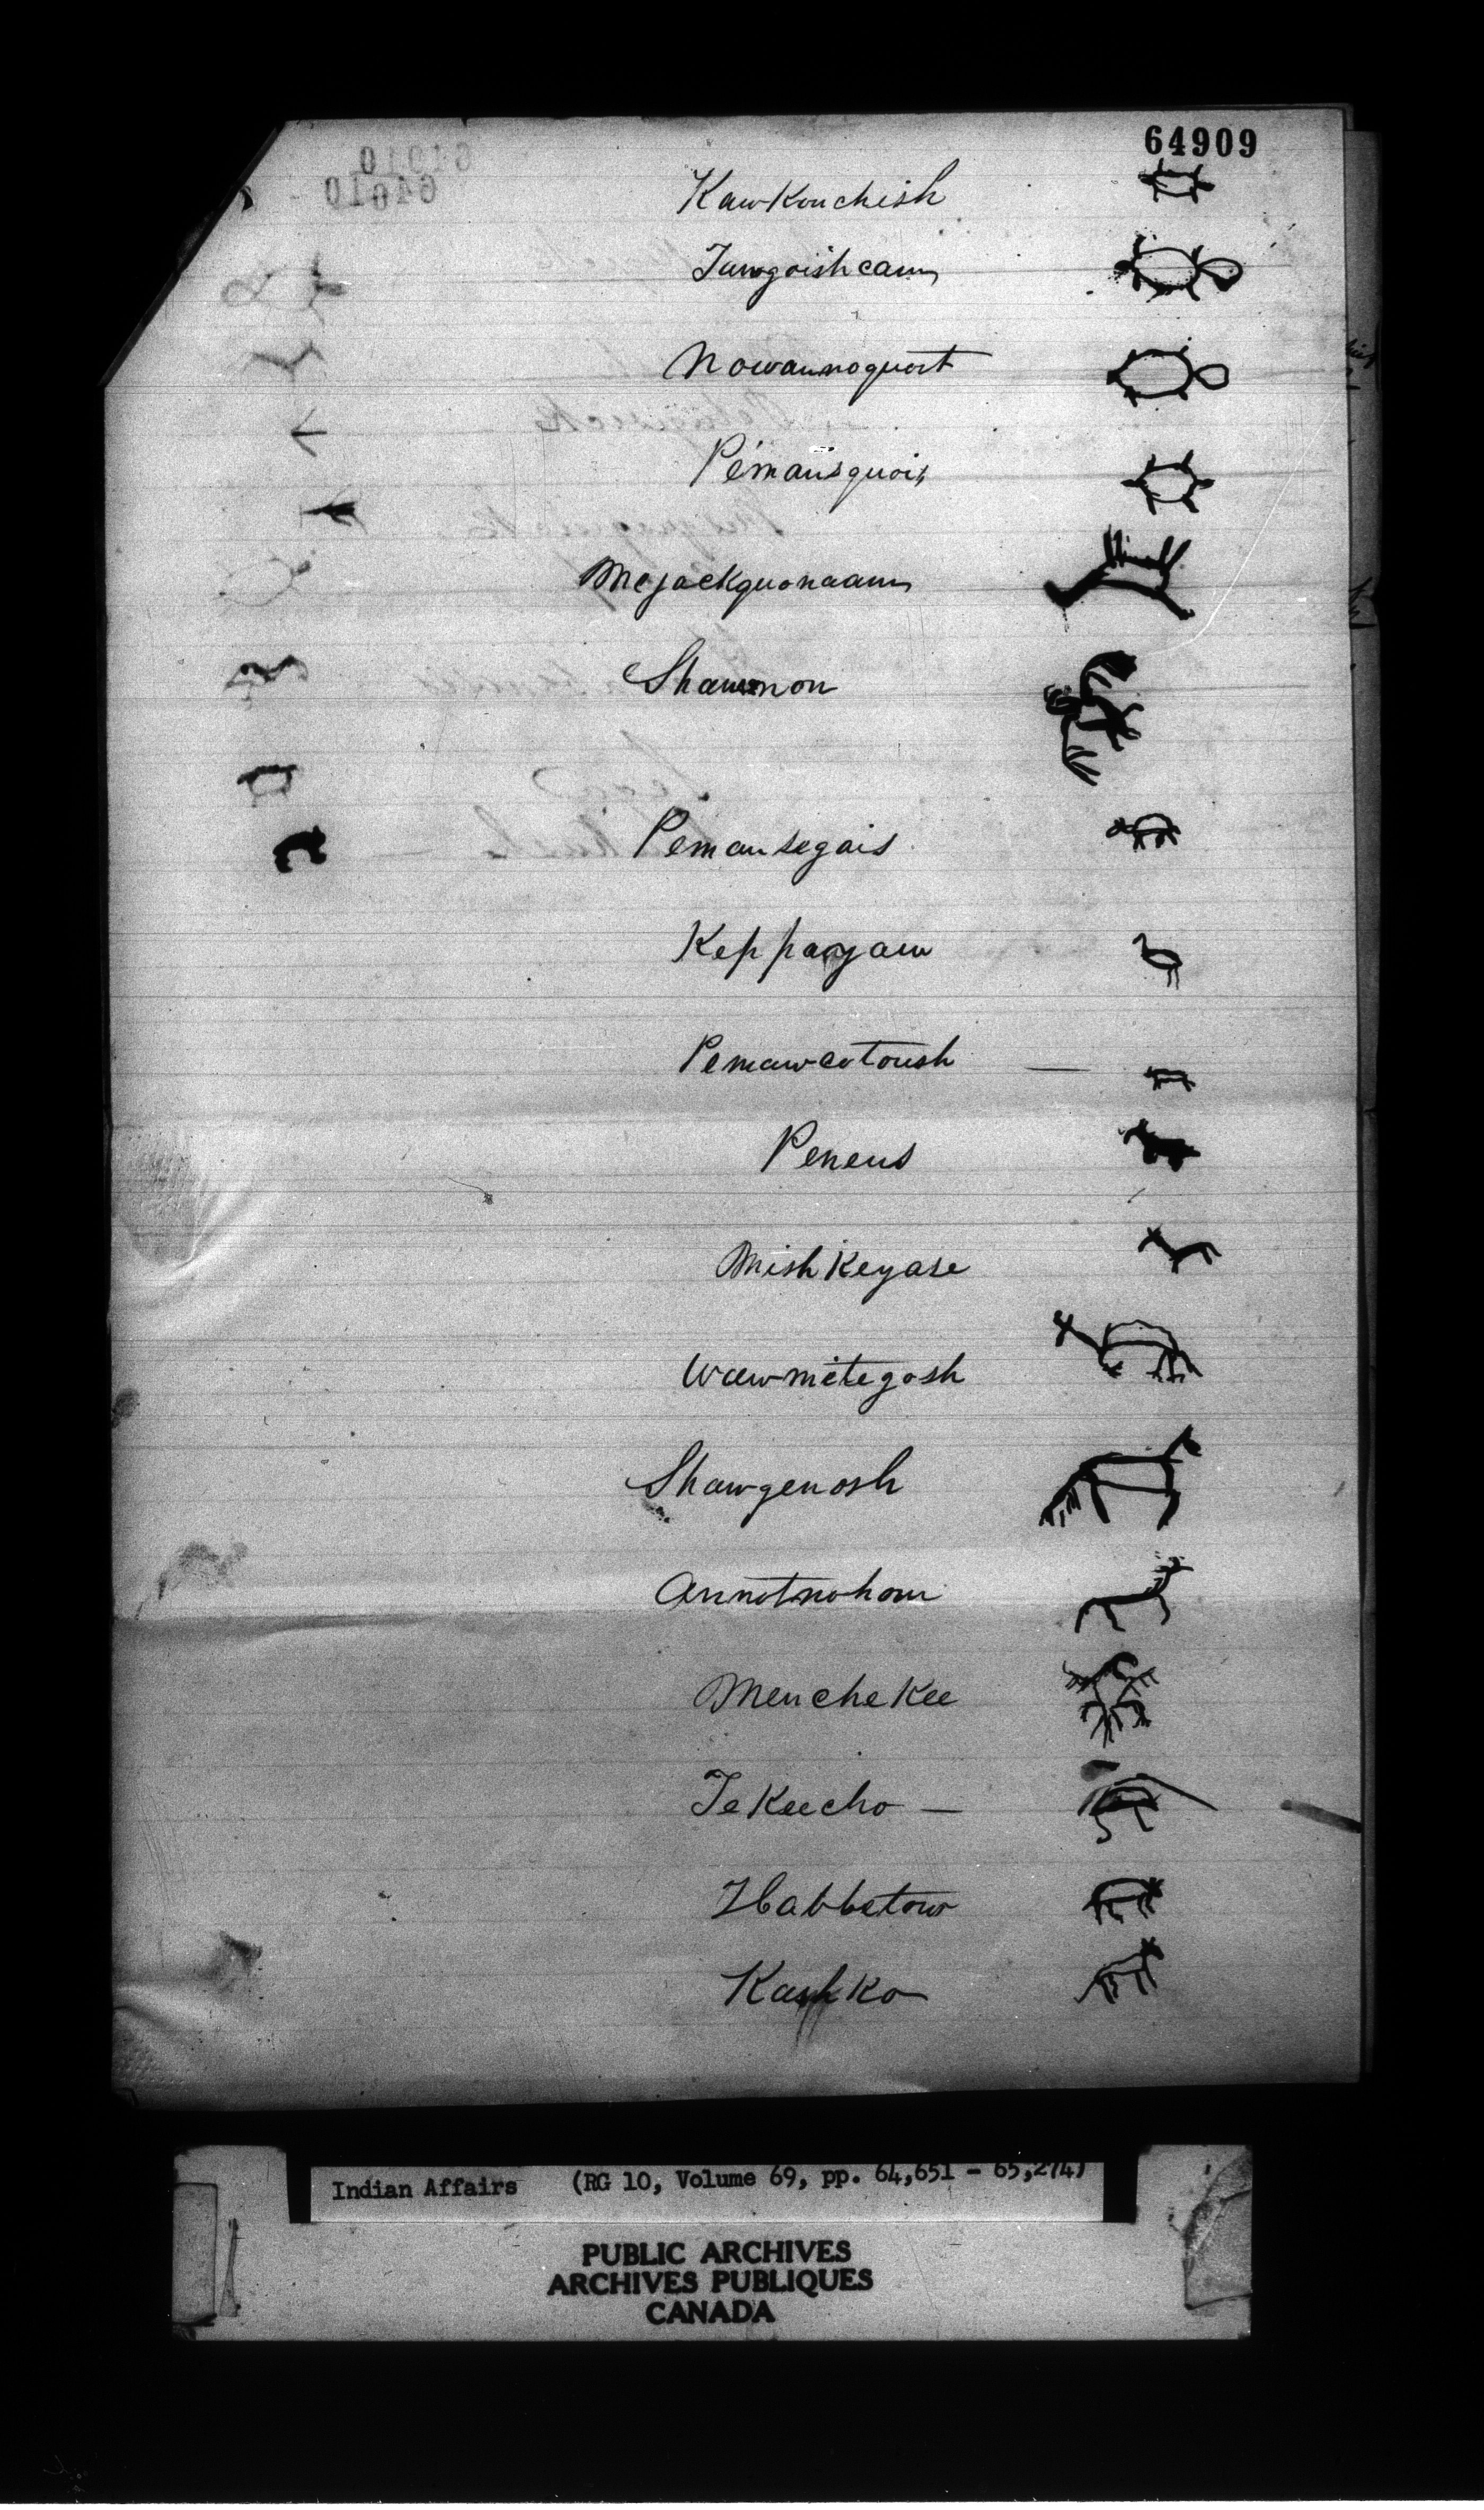 64909
KawKouchish
Tawgoishcaum
Nowaunnoquot
Pemausquois
Mejackquonaaum
Shawanon
Pemausegais
Keppaayaw
Pemawcotoush —
Peneus
MishKeyase
Wawmitegosh
Shawgenosh
Annotnohom
MencheKee
TeKeecho —
Habbetow
KashKo
Indian Affairs (RG 10, Volume 69, pp. 64,651 - 65,274)
PUBLIC ARCHIVES
ARCHIVES PUBLIQUES
CANADA